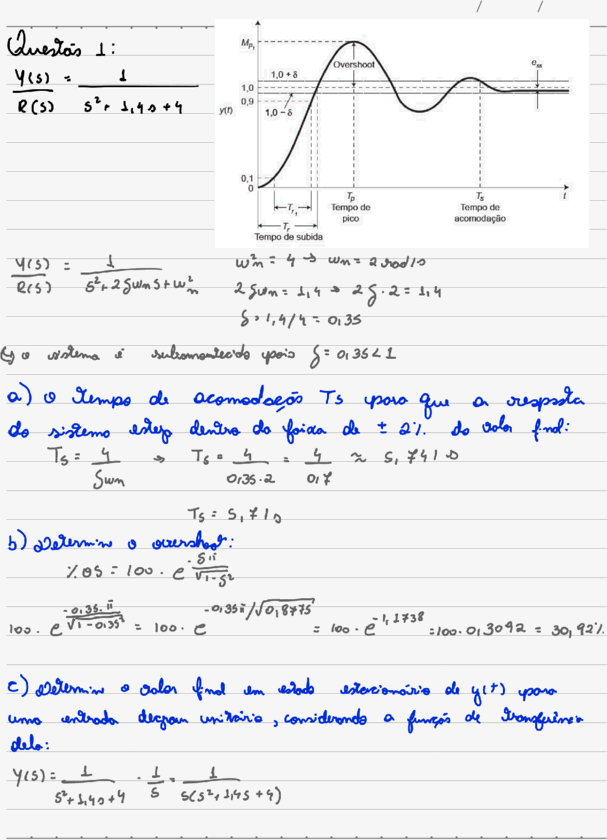 Questão 1:
Y(s)/R(s) = 1/(s² + 1,4s + 4)
Mpt
Overshoot
ess
1,0 + δ
1,0
0,9
y(t)
1,0 – δ
0,1
0
Tr1
Tp
Ts
t
Tempo de pico
Tempo de acomodação
Tr
Tempo de subida
Y(s)/R(s) = 1/(s² + 2ζωn s + ωn²)
ωn² = 4 → ωn = 2 rad/s
2ζωn = 1,4 → 2ζ·2 = 1,4
ζ = 1,4/4 = 0,35
↳ o sistema é subamortecido pois ζ = 0,35 < 1
a) O tempo de acomodação Ts para que a resposta
do sistema esteja dentro da faixa de ± 2% do valor final:
Ts = 4/(ζωn) → Ts = 4/(0,35·2) = 4/0,7 ≈ 5,741 s
Ts = 5,71s
b) Determine o overshoot:
%OS = 100 · e^(-ζπ/√(1-ζ²))
100 · e^(-0,35·π/√(1-0,35²)) = 100 · e^(-0,35π/√0,8775) = 100 · e^(-1,1738) = 100·0,3092 = 30,92%
c) Determine o valor final em estado estacionário de y(t) para
uma entrada degrau unitário, considerando a função de transferência
dela:
Y(s) = 1/(s² + 1,4s + 4) · 1/s = 1/(s(s² + 1,4s + 4))